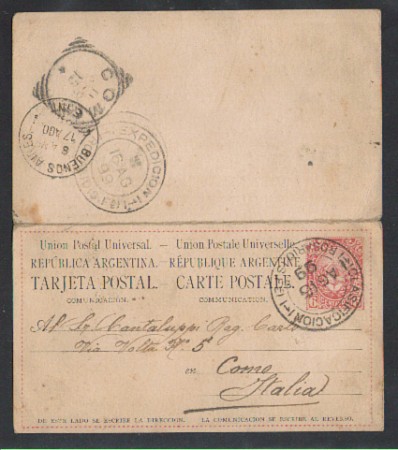 COMO
BUENOS AIRES
17 AGO
EXPEDICION
15 AG
99
Union Postal Universal. — Union Postale Universelle.
REPÚBLICA ARGENTINA. — RÉPUBLIQUE ARGENTINE.
TARJETA POSTAL. CARTE POSTALE.
COMUNICACION. COMMUNICATION.
CLASIFICACION
ROSARIO
15 AG
99
Al Sr. Cantaluppi Rag. Carlo
Via Volta N. 5
en Como
Italia
DE ESTE LADO SE ESCRIBE LA DIRECCION. LA COMUNICACION SE ESCRIBE AL REVERSO.